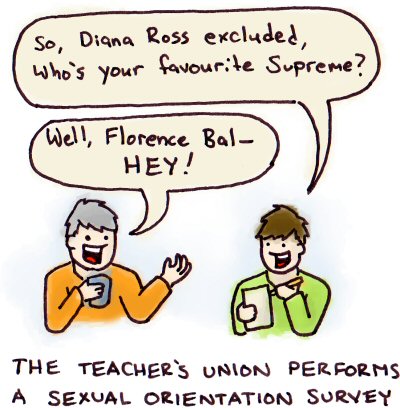 So, Diana Ross excluded,
who's your favourite Supreme?
Well, Florence Bal—
HEY!
THE TEACHER'S UNION PERFORMS
A SEXUAL ORIENTATION SURVEY